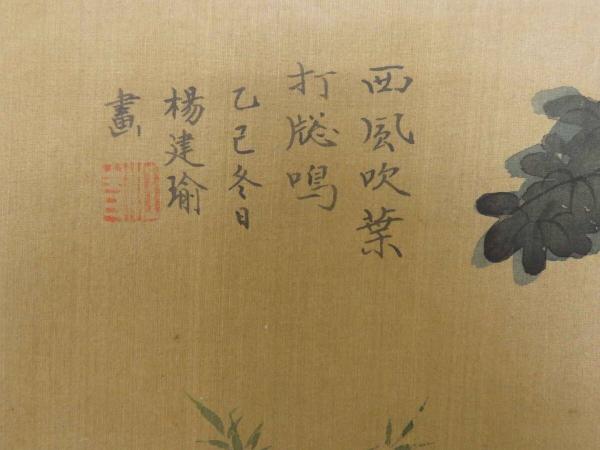 西風吹葉
打牕鳴
乙己冬日
楊建瑜
畫